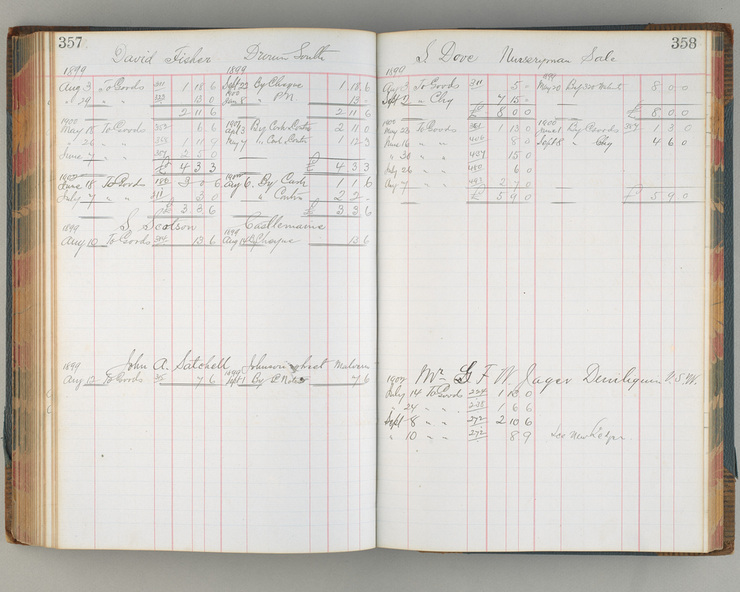 357
David Fisher Drouin South
1899 1899
Aug 3 To Goods 311 1 18 6 Sept 22 By Cheque 1 18 6
" 29 " " 13 0 1900 Jan 8 " P.N. 13 -
2 11 6 2 11 6
1900 1900
May 18 To Goods 6 6 Apl 3 By Cash 2 11 0
" 26 " " 1 11 9 May 7 " Cash 1 12 3
June 7 " " 2 5 0
£ 4 3 3 £ 4 3 3
June 18 To Goods 180 3 0 6 Aug 6 By Cash 1 1 6
July 7 " " 311 3 0 " Contra 2 2 -
£ 3 3 6 £ 3 3 6
S. Scolson Castlemaine
1899 1899
Aug 10 To Goods 13 6 Aug By Cheque 13 6
1899 John A. Satchell Johnson Street Malvern
Aug 12 To Goods 7 6 1899 Sept 1 By P. Note 7 6
358
S Dove Nurseryman Sale
Aug 3 To Goods 311 5 - May 20 By 8 0 0
Sept " Chq 7 15 -
£ 8 0 0 £ 8 0 0
1900 1900
May 28 To Goods 361 1 13 0 By Goods 367 1 3 0
June 16 " " 406 8 0 Sept 8 " Chq 4 6 0
" 30 " " 407 15 0
July 26 " " 480 6 0
Aug 7 " " 493 2 7 0
£ 5 9 0 £ 5 9 0
1902 Mr G F W Jager Deniliquin N.S.W.
July 14 To Goods 224 1 13 0
" 24 " " 1 6 6
Sept 8 " " 272 2 10 6
" 10 " " 272 8 9 See New Ledger